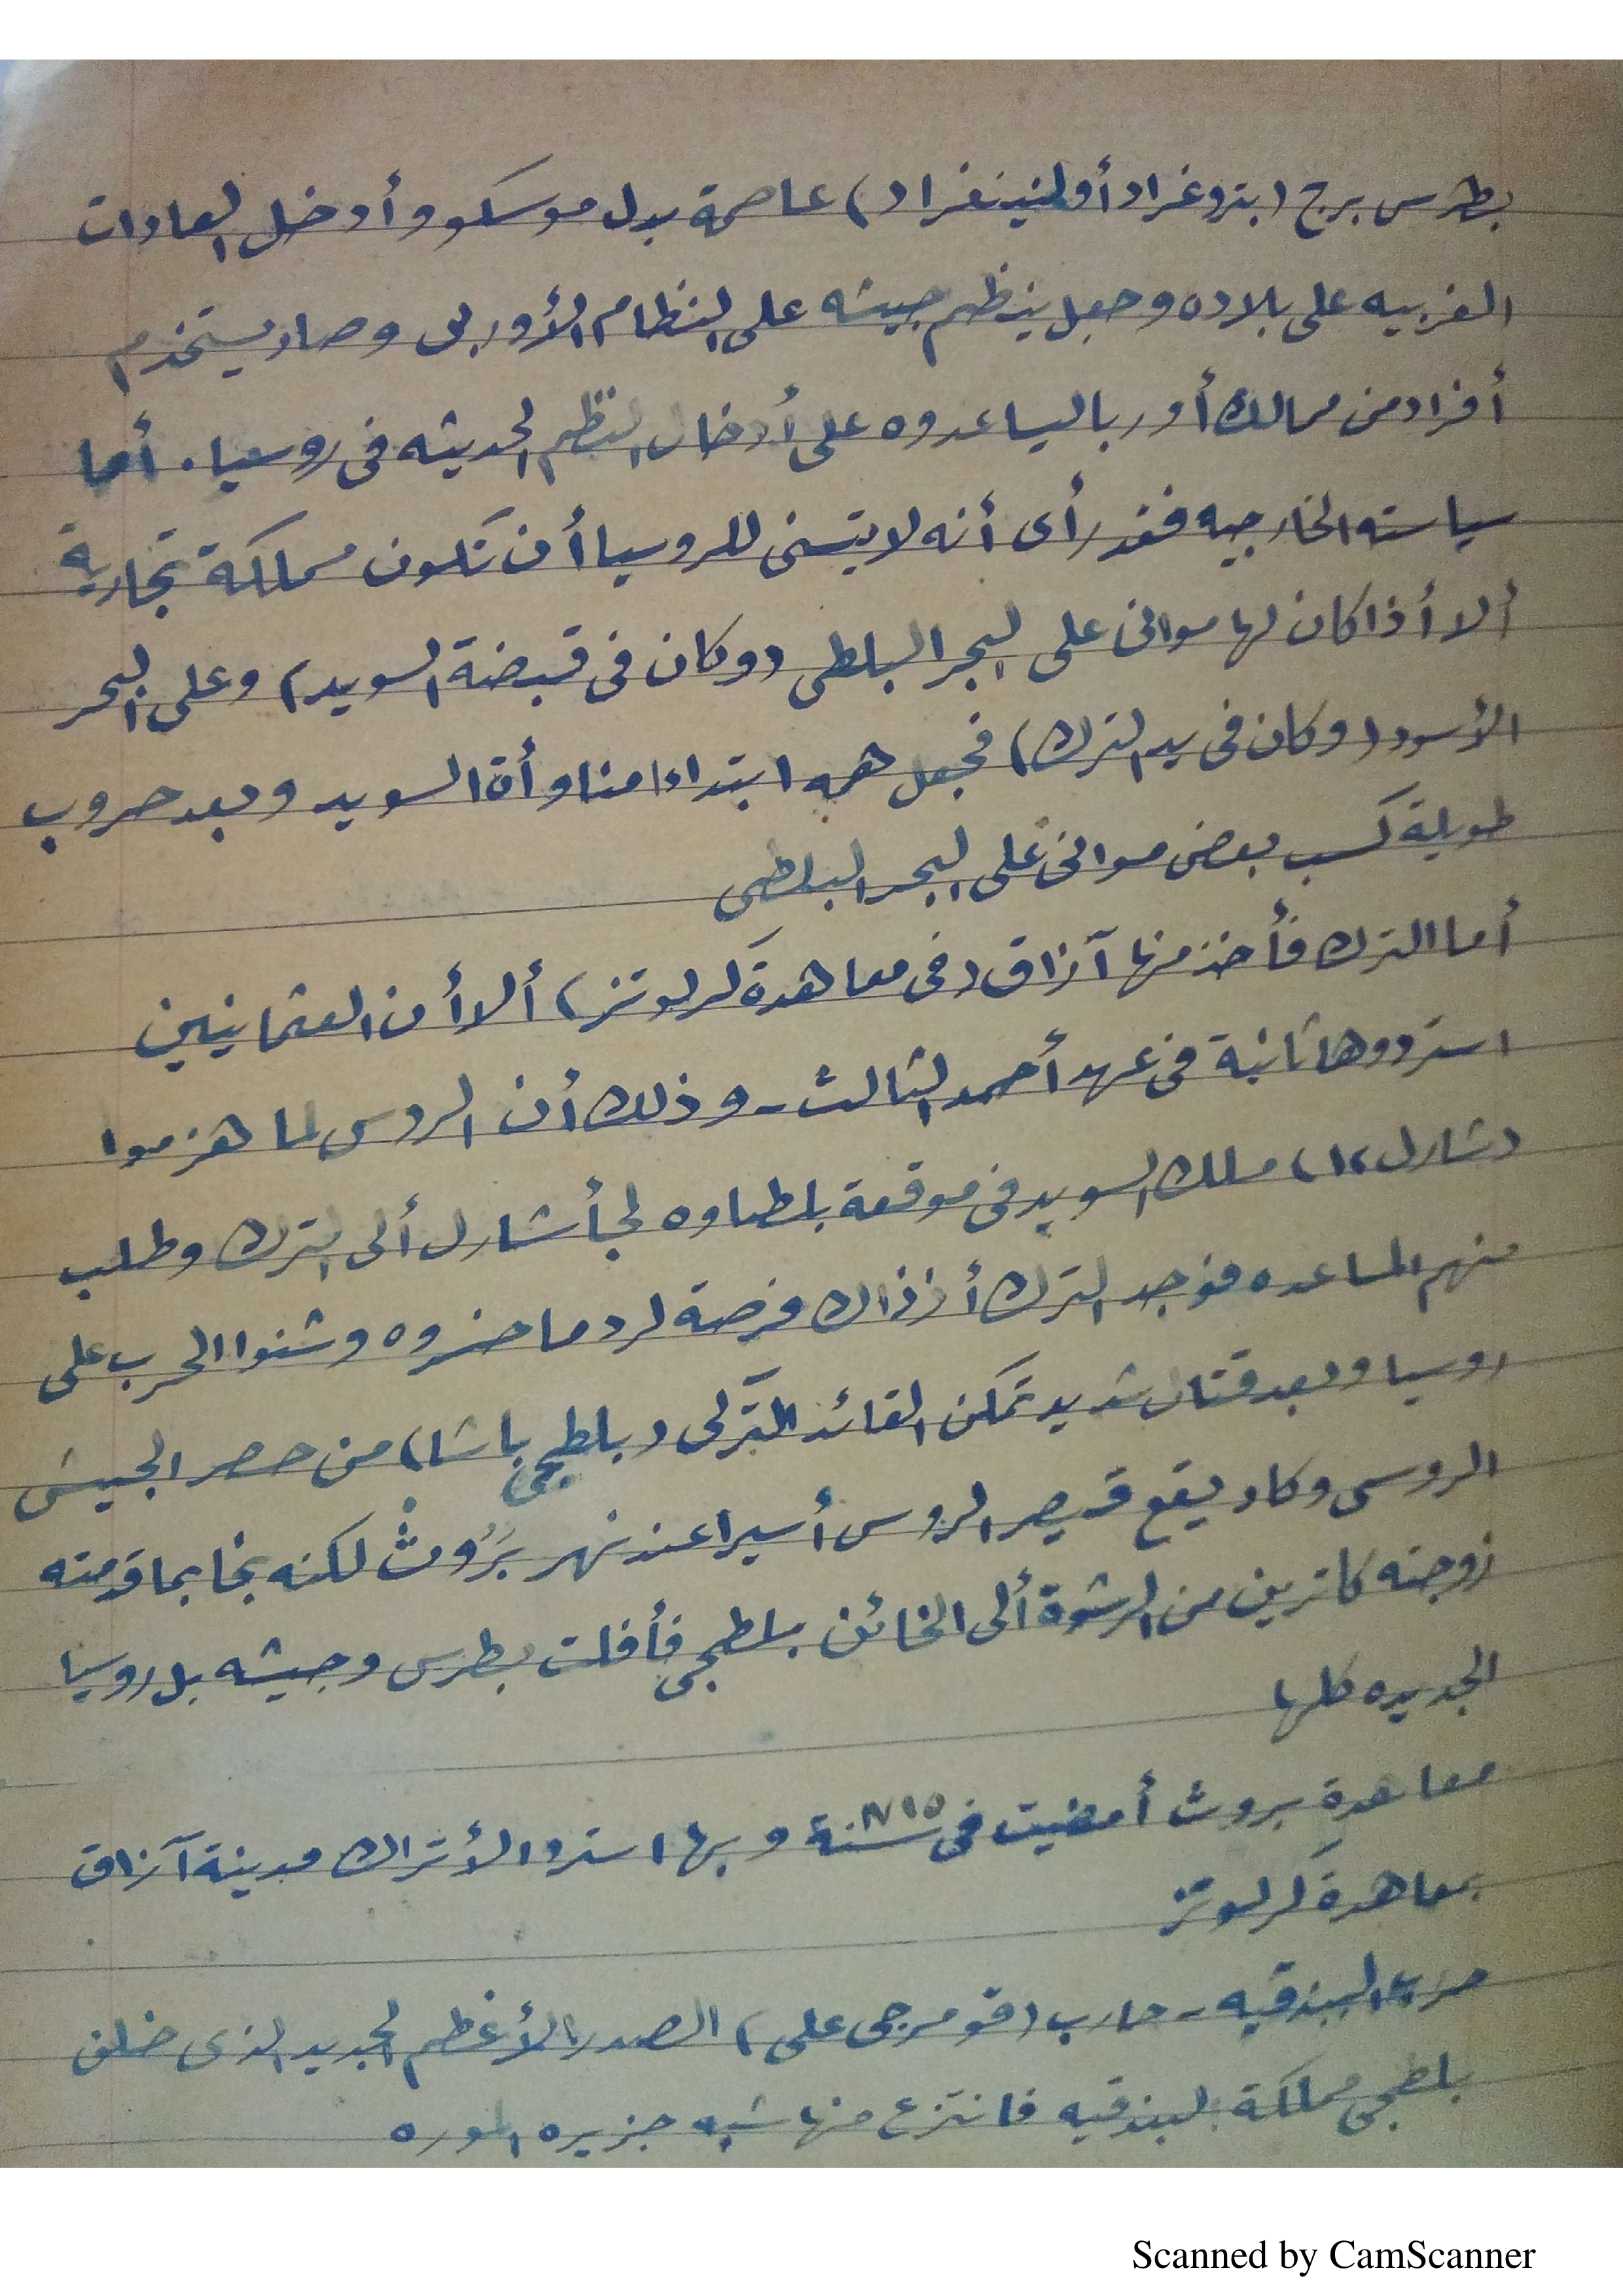 بطرس برج (بتروغراد أو لنينغراد) عاصمة بدل موسكو وأدخل العادات
الغربيه على بلاده وجعل ينظم جيشه على النظام الأوربى وصار يستخدم
أفراد من ممالك أوربا ليساعدوه على أدخال النظم الحديثه فى روسيا. أما
سياسته الخارجيه فقد رأى أنه لا يتسنى للروسيا أن تكون مملكة تجارية
ألا أذا كان لها موانى على البحر البلطى (وكان فى قبضة السويد) وعلى البحر
الأسود (وكان فى يد الترك) فجعل همه ابتداءا مناوأة السويد وبعد حروب
طويلة كسب بعض موانى على البحر البلطى
أما الترك فأخذ منها آزاق (فى معاهدة كرلوتز) ألا أن العثمانيين
استردوها ثانية فى عهد أحمد الثالث - وذلك أن الروس لما هزموا
(شارل ١٢) ملك السويد فى موقعة بلطاوه لجأ شارل ألى الترك وطلب
منهم المساعده فوجد الترك أذ ذاك فرصة لرد ما خسروه وشنوا الحرب على
روسيا وبعد قتال شديد تمكن القائد التركى (بلطجى باشا) من حصر الجيش
الروسى وكاد يقع قيصر الروس أسيرا عند نهر بروث لكنه نجا بما قدمته
زوجته كاترين من الرشوة ألى الخائن بلطجى فأفلت بطرس وجيشه بل روسيا
الجديده كلها
معاهدة بروث أمضيت فى سنة ١٧١٥ وبها استرد الأتراك مدينة آزاق
بمعاهدة كرلوتز
حرب البندقيه - حارب (قومرجى على) الصدر الأعظم الجديد الذى خلف
بلطجى مملكة البندقيه فانتزع منها شبه جزيره الموره
Scanned by CamScanner